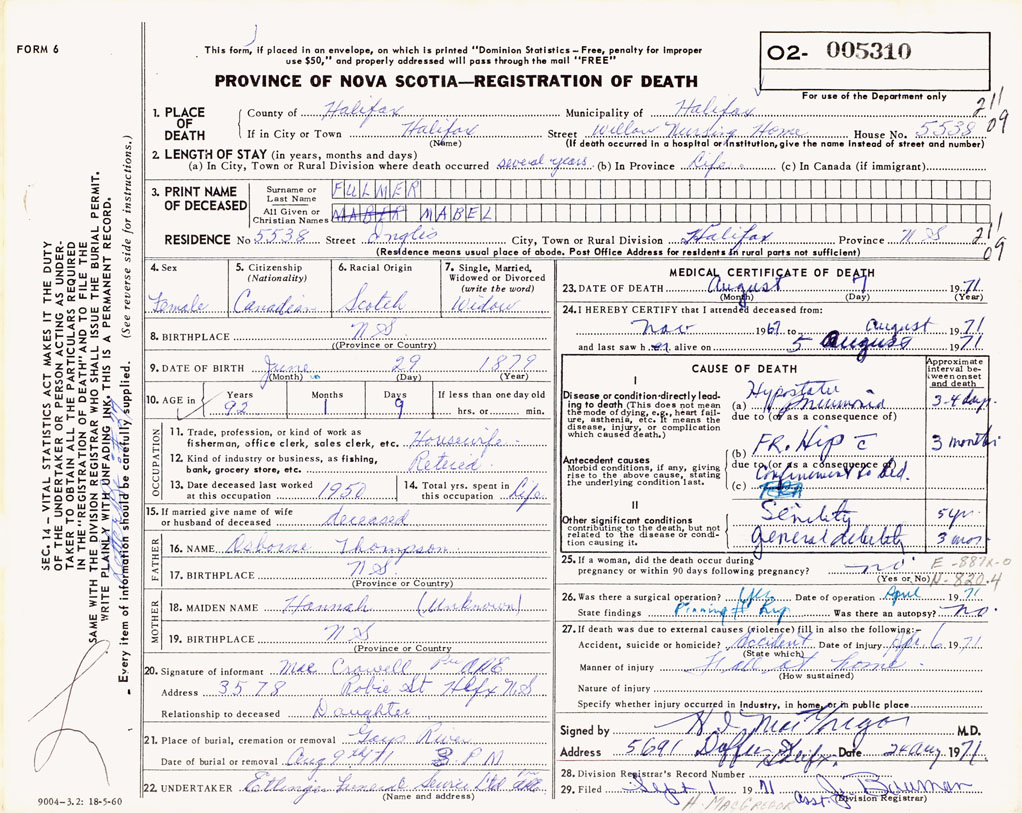 FORM 6
This form, if placed in an envelope, on which is printed "Dominion Statistics – Free, penalty for improper
use $50," and properly addressed will pass through the mail "FREE"
PROVINCE OF NOVA SCOTIA—REGISTRATION OF DEATH
02- 005310
For use of the Department only
211
09
1. PLACE OF DEATH
County of Halifax Municipality of Halifax
If in City or Town Halifax Street Willow Nursing Home House No. 5538
(Name) (If death occurred in a hospital or institution, give the name instead of street and number)
2. LENGTH OF STAY (in years, months and days)
(a) In City, Town or Rural Division where death occurred several years (b) In Province Life (c) In Canada (if immigrant)
3. PRINT NAME OF DECEASED
Surname or Last Name FULMER
All Given or Christian Names MABEL
RESIDENCE No 5538 Street Inglis City, Town or Rural Division Halifax Province N S
211
09
(Residence means usual place of abode. Post Office Address for residents in rural parts not sufficient)
4. Sex Female
5. Citizenship (Nationality) Canadian
6. Racial Origin Scotch
7. Single, Married, Widowed or Divorced (write the word) Widow
8. BIRTHPLACE N S
(Province or Country)
9. DATE OF BIRTH June 29 1879
(Month) (Day) (Year)
10. AGE in Years 92 Months 1 Days 9 If less than one day old hrs. or min.
OCCUPATION
11. Trade, profession, or kind of work as
fisherman, office clerk, sales clerk, etc. Housewife
12. Kind of industry or business, as fishing,
bank, grocery store, etc. Retired
13. Date deceased last worked at this occupation 1950
14. Total yrs. spent in this occupation Life
15. If married give name of wife
or husband of deceased deceased
FATHER
16. NAME Osborne Thompson
17. BIRTHPLACE N S
(Province or Country)
MOTHER
18. MAIDEN NAME Hannah (Unknown)
19. BIRTHPLACE N S
(Province or Country)
20. Signature of informant Mae Crowell Per
Address 3578 Robie St Hlfx N S
Relationship to deceased Daughter
21. Place of burial, cremation or removal Gays River
Date of burial or removal Aug 9 71 3 PM
22. UNDERTAKER Ettinger Funeral Service Ltd
(Name and address)
MEDICAL CERTIFICATE OF DEATH
23. DATE OF DEATH August 7 1971
(Month) (Day) (Year)
24. I HEREBY CERTIFY that I attended deceased from:
Nov 1967 to August 1971
and last saw h er alive on 5 August 1971
CAUSE OF DEATH
Approximate interval between onset and death
I
Disease or condition directly leading to death (This does not mean the mode of dying, e.g., heart failure, asthenia, etc. It means the disease, injury, or complication which caused death.)
(a) Hypostatic Pneumonia 3-4 days
due to (or as a consequence of)
(b) FR. Hip c 3 months
Antecedent causes
Morbid conditions, if any, giving rise to the above cause, stating the underlying condition last.
due to (or as a consequence of)
Confinement to Bed.
(c)
II
Other significant conditions contributing to the death, but not related to the disease or condition causing it.
Senility 5 yr.
General debility 3 mos
25. If a woman, did the death occur during
pregnancy or within 90 days following pregnancy? no
(Yes or No)
E-887X-0
N-820.4
26. Was there a surgical operation? Yes Date of operation April 1971
State findings Pinning Hip Was there an autopsy? no
27. If death was due to external causes (violence) fill in also the following:–
Accident, suicide or homicide? Accident Date of injury 6 1971
(State which)
Manner of injury Fall at home
(How sustained)
Nature of injury
Specify whether injury occurred in industry, in home, or in public place
Signed by M.D.
Address 5691 Date 24 Aug 1971
28. Division Registrar's Record Number
29. Filed Sept 1 1971 asst. J. Bauman
H. MACGREGOR
(Division Registrar)
9004–3.2: 18-5-60
SEC. 14 – VITAL STATISTICS ACT MAKES IT THE DUTY
OF THE UNDERTAKER OR PERSON ACTING AS UNDER-
TAKER TO OBTAIN ALL THE PARTICULARS REQUIRED
IN THE "REGISTRATION OF DEATH" AND TO FILE THE
SAME WITH THE DIVISION REGISTRAR WHO SHALL ISSUE THE BURIAL PERMIT.
WRITE PLAINLY WITH UNFADING INK. THIS IS A PERMANENT RECORD.
- Every item of information should be carefully supplied. (See reverse side for instructions.)